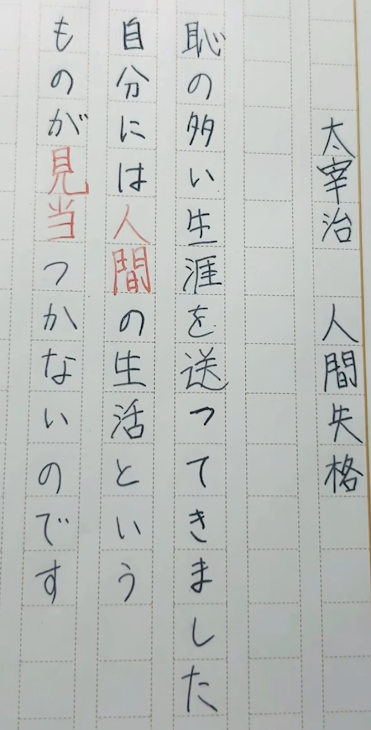 太宰治　人間失格
恥の多い生涯を送ってきました
自分には人間の生活という
ものが見当つかないのです